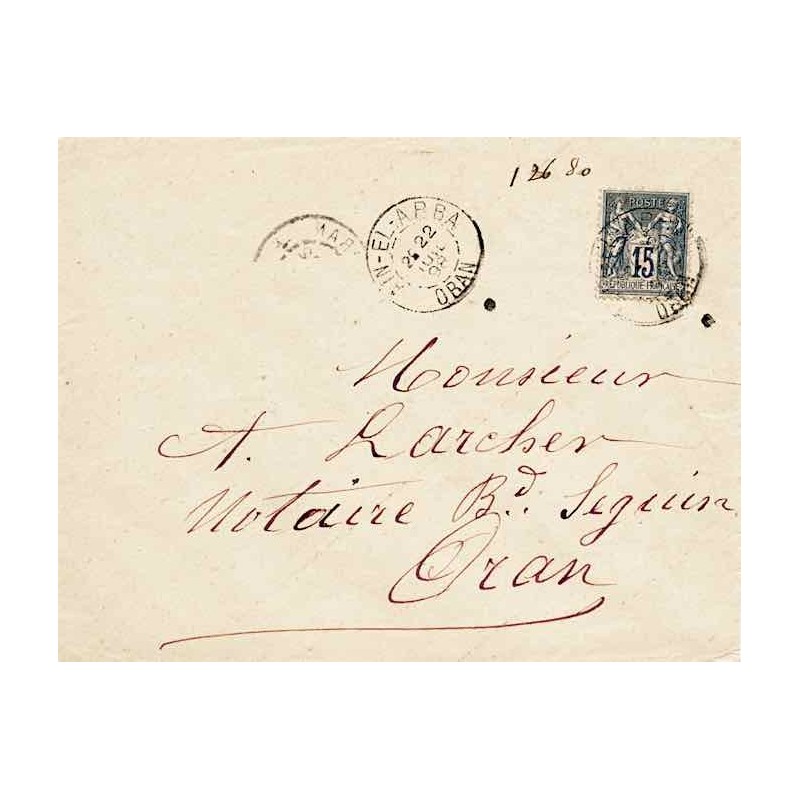 1 26 80
AIN-EL-ARBA
22
ORAN
POSTE
15
REPUBLIQUE FRANÇAISE
Monsieur
A. Larcher
Notaire Bd. Seguin
Oran